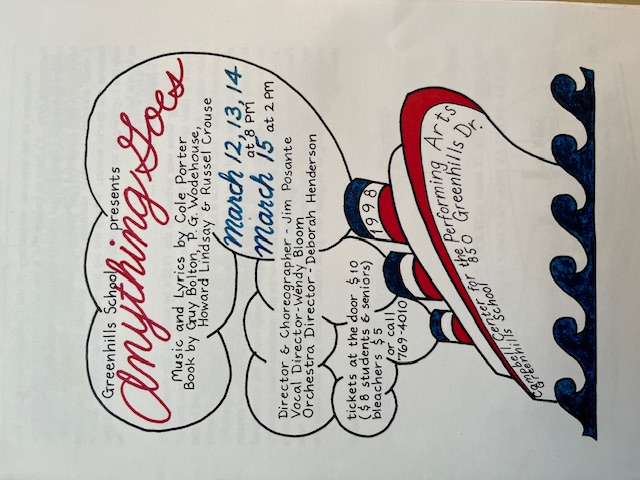 Greenhills School presents
Anything Goes
Music and Lyrics by Cole Porter
Book by Guy Bolton, P. G. Wodehouse,
Howard Lindsay & Russel Crouse
March 12, 13, 14
at 8 PM
March 15 at 2 PM
Director & Choreographer - Jim Posante
Vocal Director - Wendy Bloom
Orchestra Director - Deborah Henderson
tickets at the door $10
($8 students & seniors)
bleachers $5
or call
769-4010
1998
Campbell Center for the Performing Arts
Greenhills School 850 Greenhills Dr.